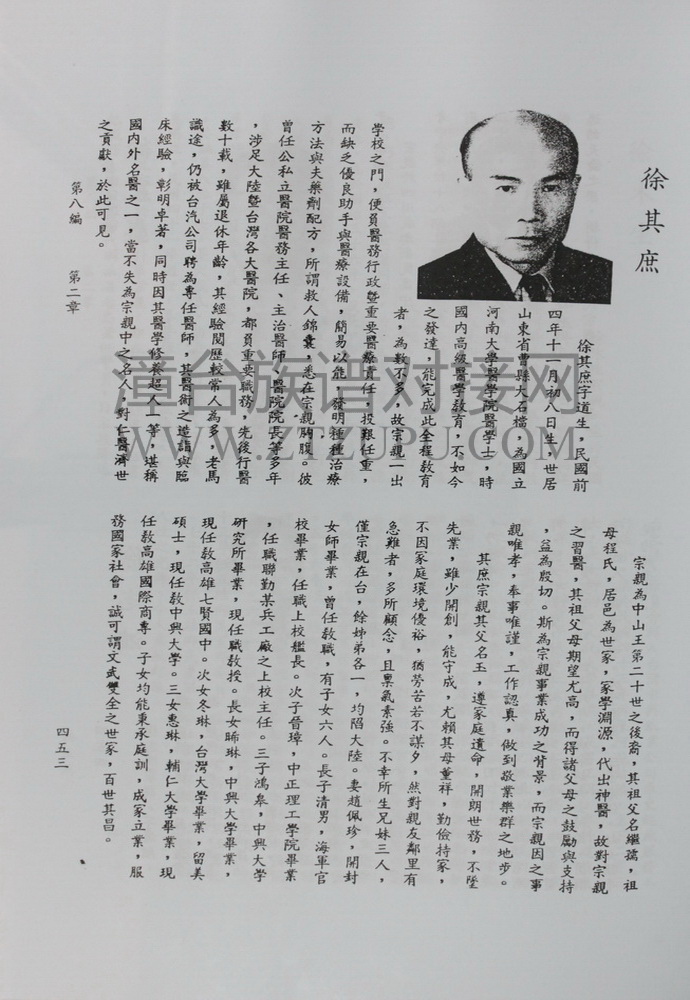 徐其庶
徐其庶字道生，民國前
四年十一月初八日生，世居
山東省曹縣大石檔，為國立
河南大學醫學院醫學士，時
國內高級醫學教育，不如今
之發達，能完成此全程教育
者，為數不多，故宗親一出
學校之門，便負醫務行政暨重要醫療責任，投艱任重，
而缺乏優良助手與醫療設備，簡易以能，發明種種治療
方法與夫藥劑配方，所謂救人錦囊，悉在宗親胸腹。彼
曾任公私立醫院醫務主任、主治醫師、醫院院長等多年
，涉足大陸暨台灣各大醫院，都負重要職務，先後行醫
數十載，雖屬退休年齡，其經驗閱歷較常人為多，老馬
識途，仍被台汽公司聘為專任醫師，其醫術之造詣與臨
床經驗，彰明卓著，同時因其醫學修養超人一等，堪稱
國內外名醫之一，當不失為宗親中之名人，對仁醫濟世
之貢獻，於此可見。
宗親為中山王第二十世之後裔，其祖父名繼孺，祖
母程氏，居邑為世家，家學淵源，代出神醫，故對宗親
之習醫，其祖父母期望尤高，而得諸父母之鼓勵與支持
，益為殷切。斯為宗親事業成功之背景，而宗親因之事
親唯孝，奉事唯謹，工作認真，做到敬業樂群之地步。
其庶宗親其父名玉，遵家庭遺命，開朗世務，不墜
先業，雖少開創，能守成，尤賴其母董祥，勤儉持家，
不因家庭環境優裕，猶勞苦若不謀夕，然對親友鄰里有
急難者，多所顧念，且稟氣素強。不幸所生兄妹三人，
僅宗親在台，餘姊弟各一，均陷大陸。妻趙佩珍，開封
女師畢業，曾任教職，有子女六人。長子清男，海軍官
校畢業，任職上校艦長。次子晉璋，中正理工學院畢業
，任職聯勤某兵工廠之上校主任。三子鴻皋，中興大學
研究所畢業，現任職教授。長女晞琳，中興大學畢業，
現任教高雄七賢國中。次女冬琳，台灣大學畢業，留美
碩士，現任教中興大學。三女惠琳，輔仁大學畢業，現
任教高雄國際商專。子女均能秉承庭訓，成家立業，服
務國家社會，誠可謂文武雙全之世家，百世其昌。
第八編　第二章
四五三
漳台族谱对接网
WWW.ZTZUPU.COM